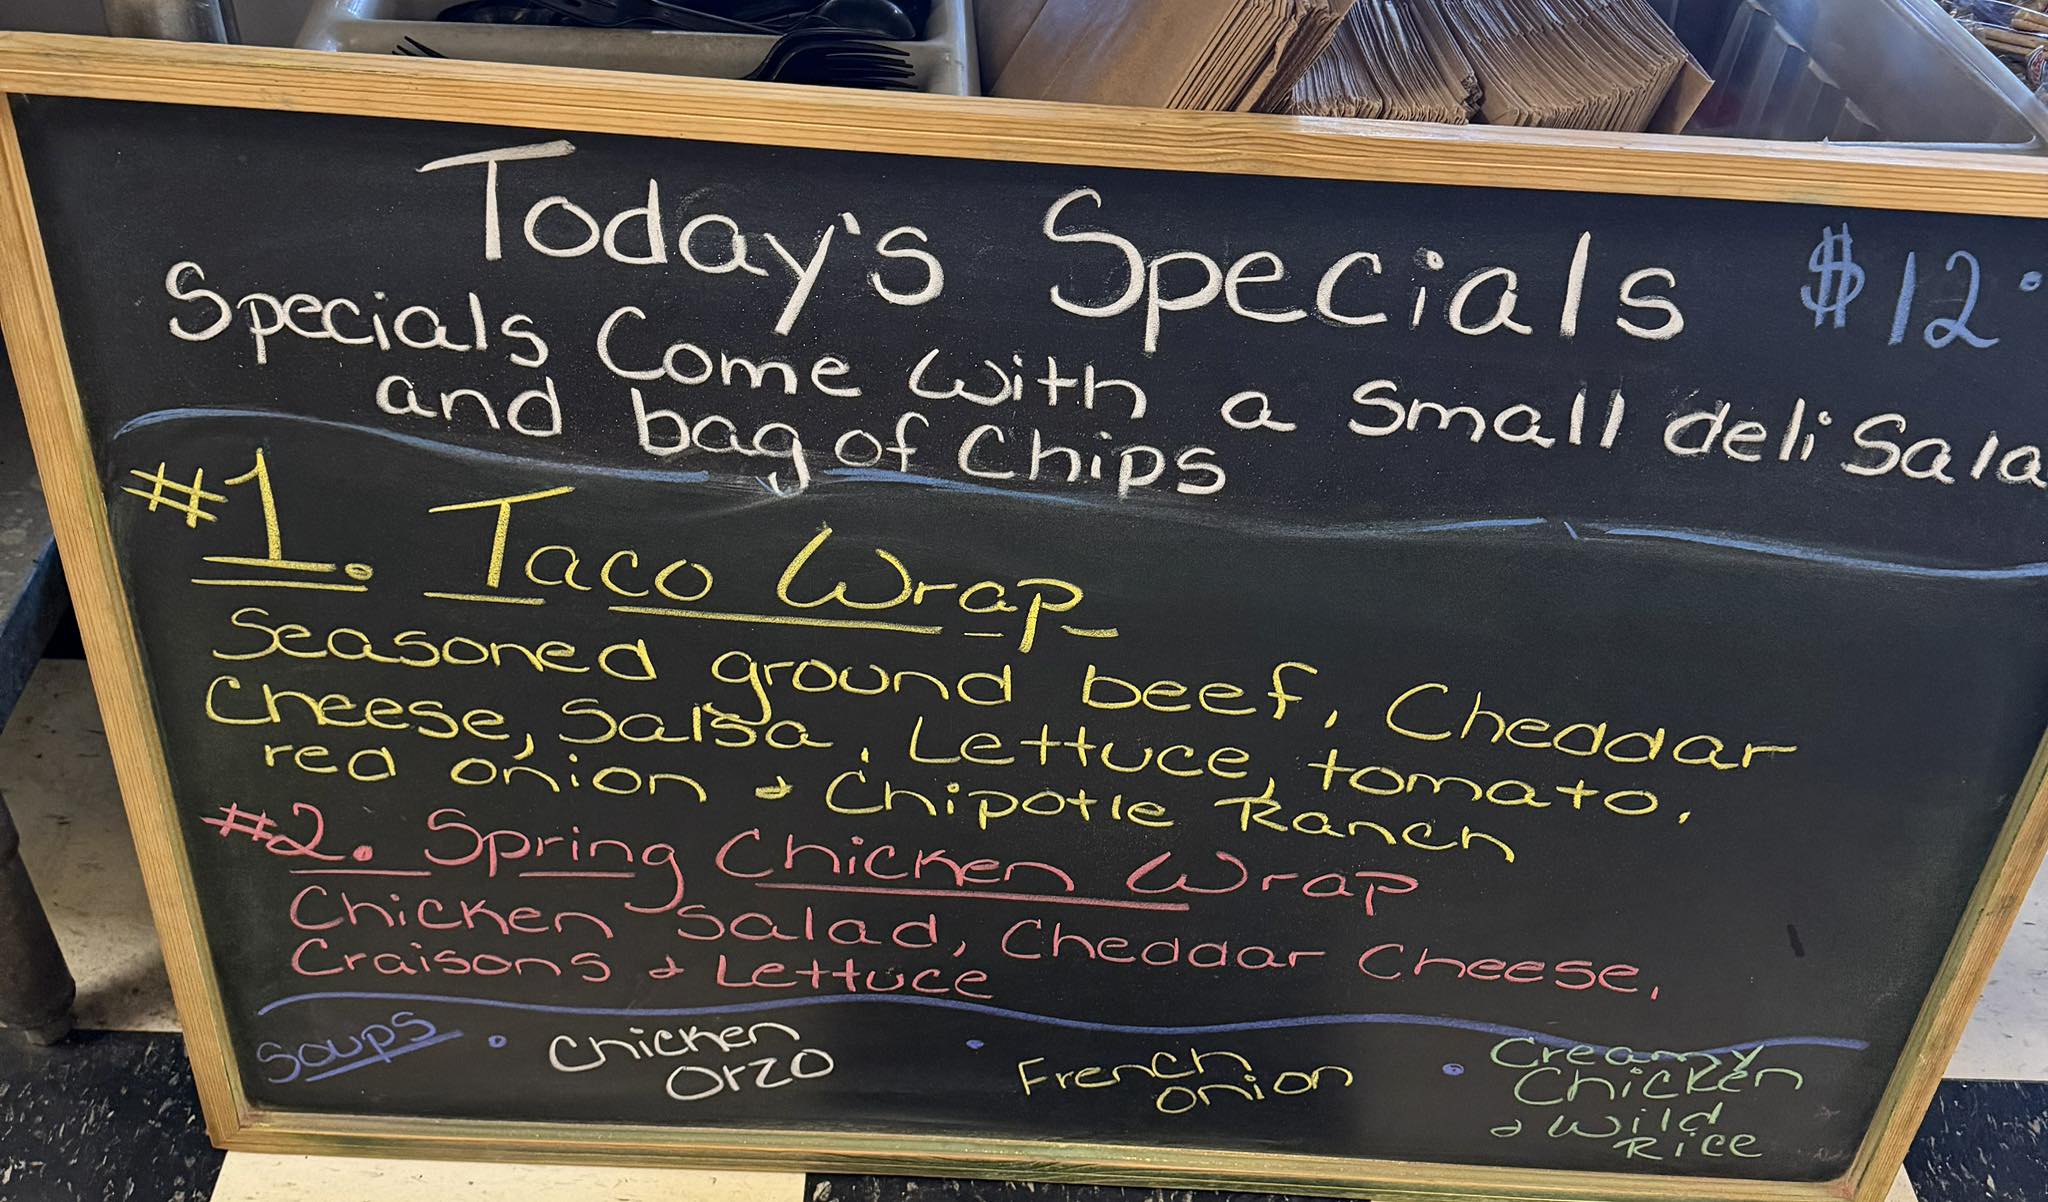 Today's Specials $12.
Specials Come with a small deli Sala
and bag of Chips
#1. Taco Wrap
Seasoned ground beef, Cheddar
Cheese, Salsa, Lettuce, tomato,
red onion & Chipotle Ranch
#2. Spring Chicken Wrap
Chicken Salad, Cheddar Cheese,
Craisons & Lettuce
Soups • Chicken Orzo • French Onion • Creamy Chicken & Wild Rice